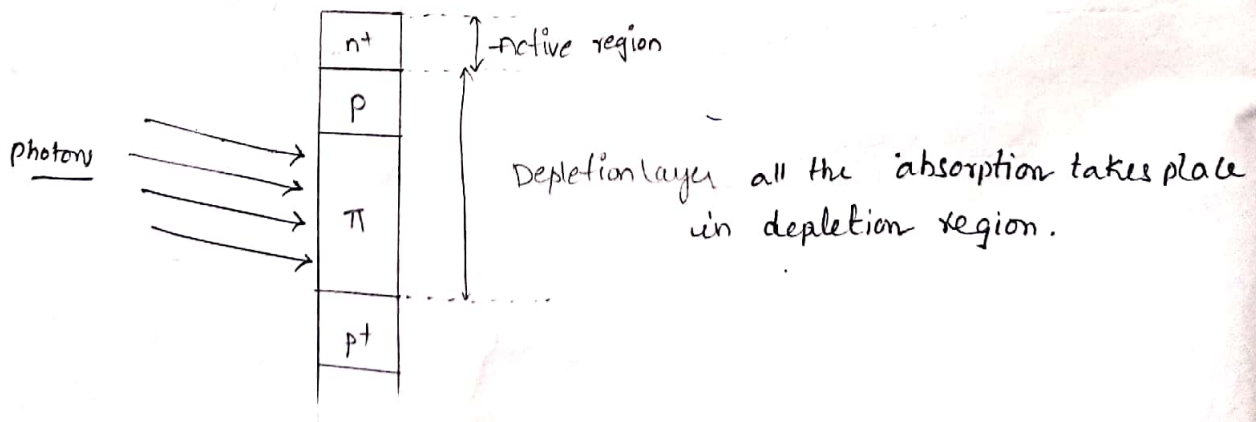 n+
Active region
p
photons
Depletion layer all the absorption takes place
π
in depletion region.
p+